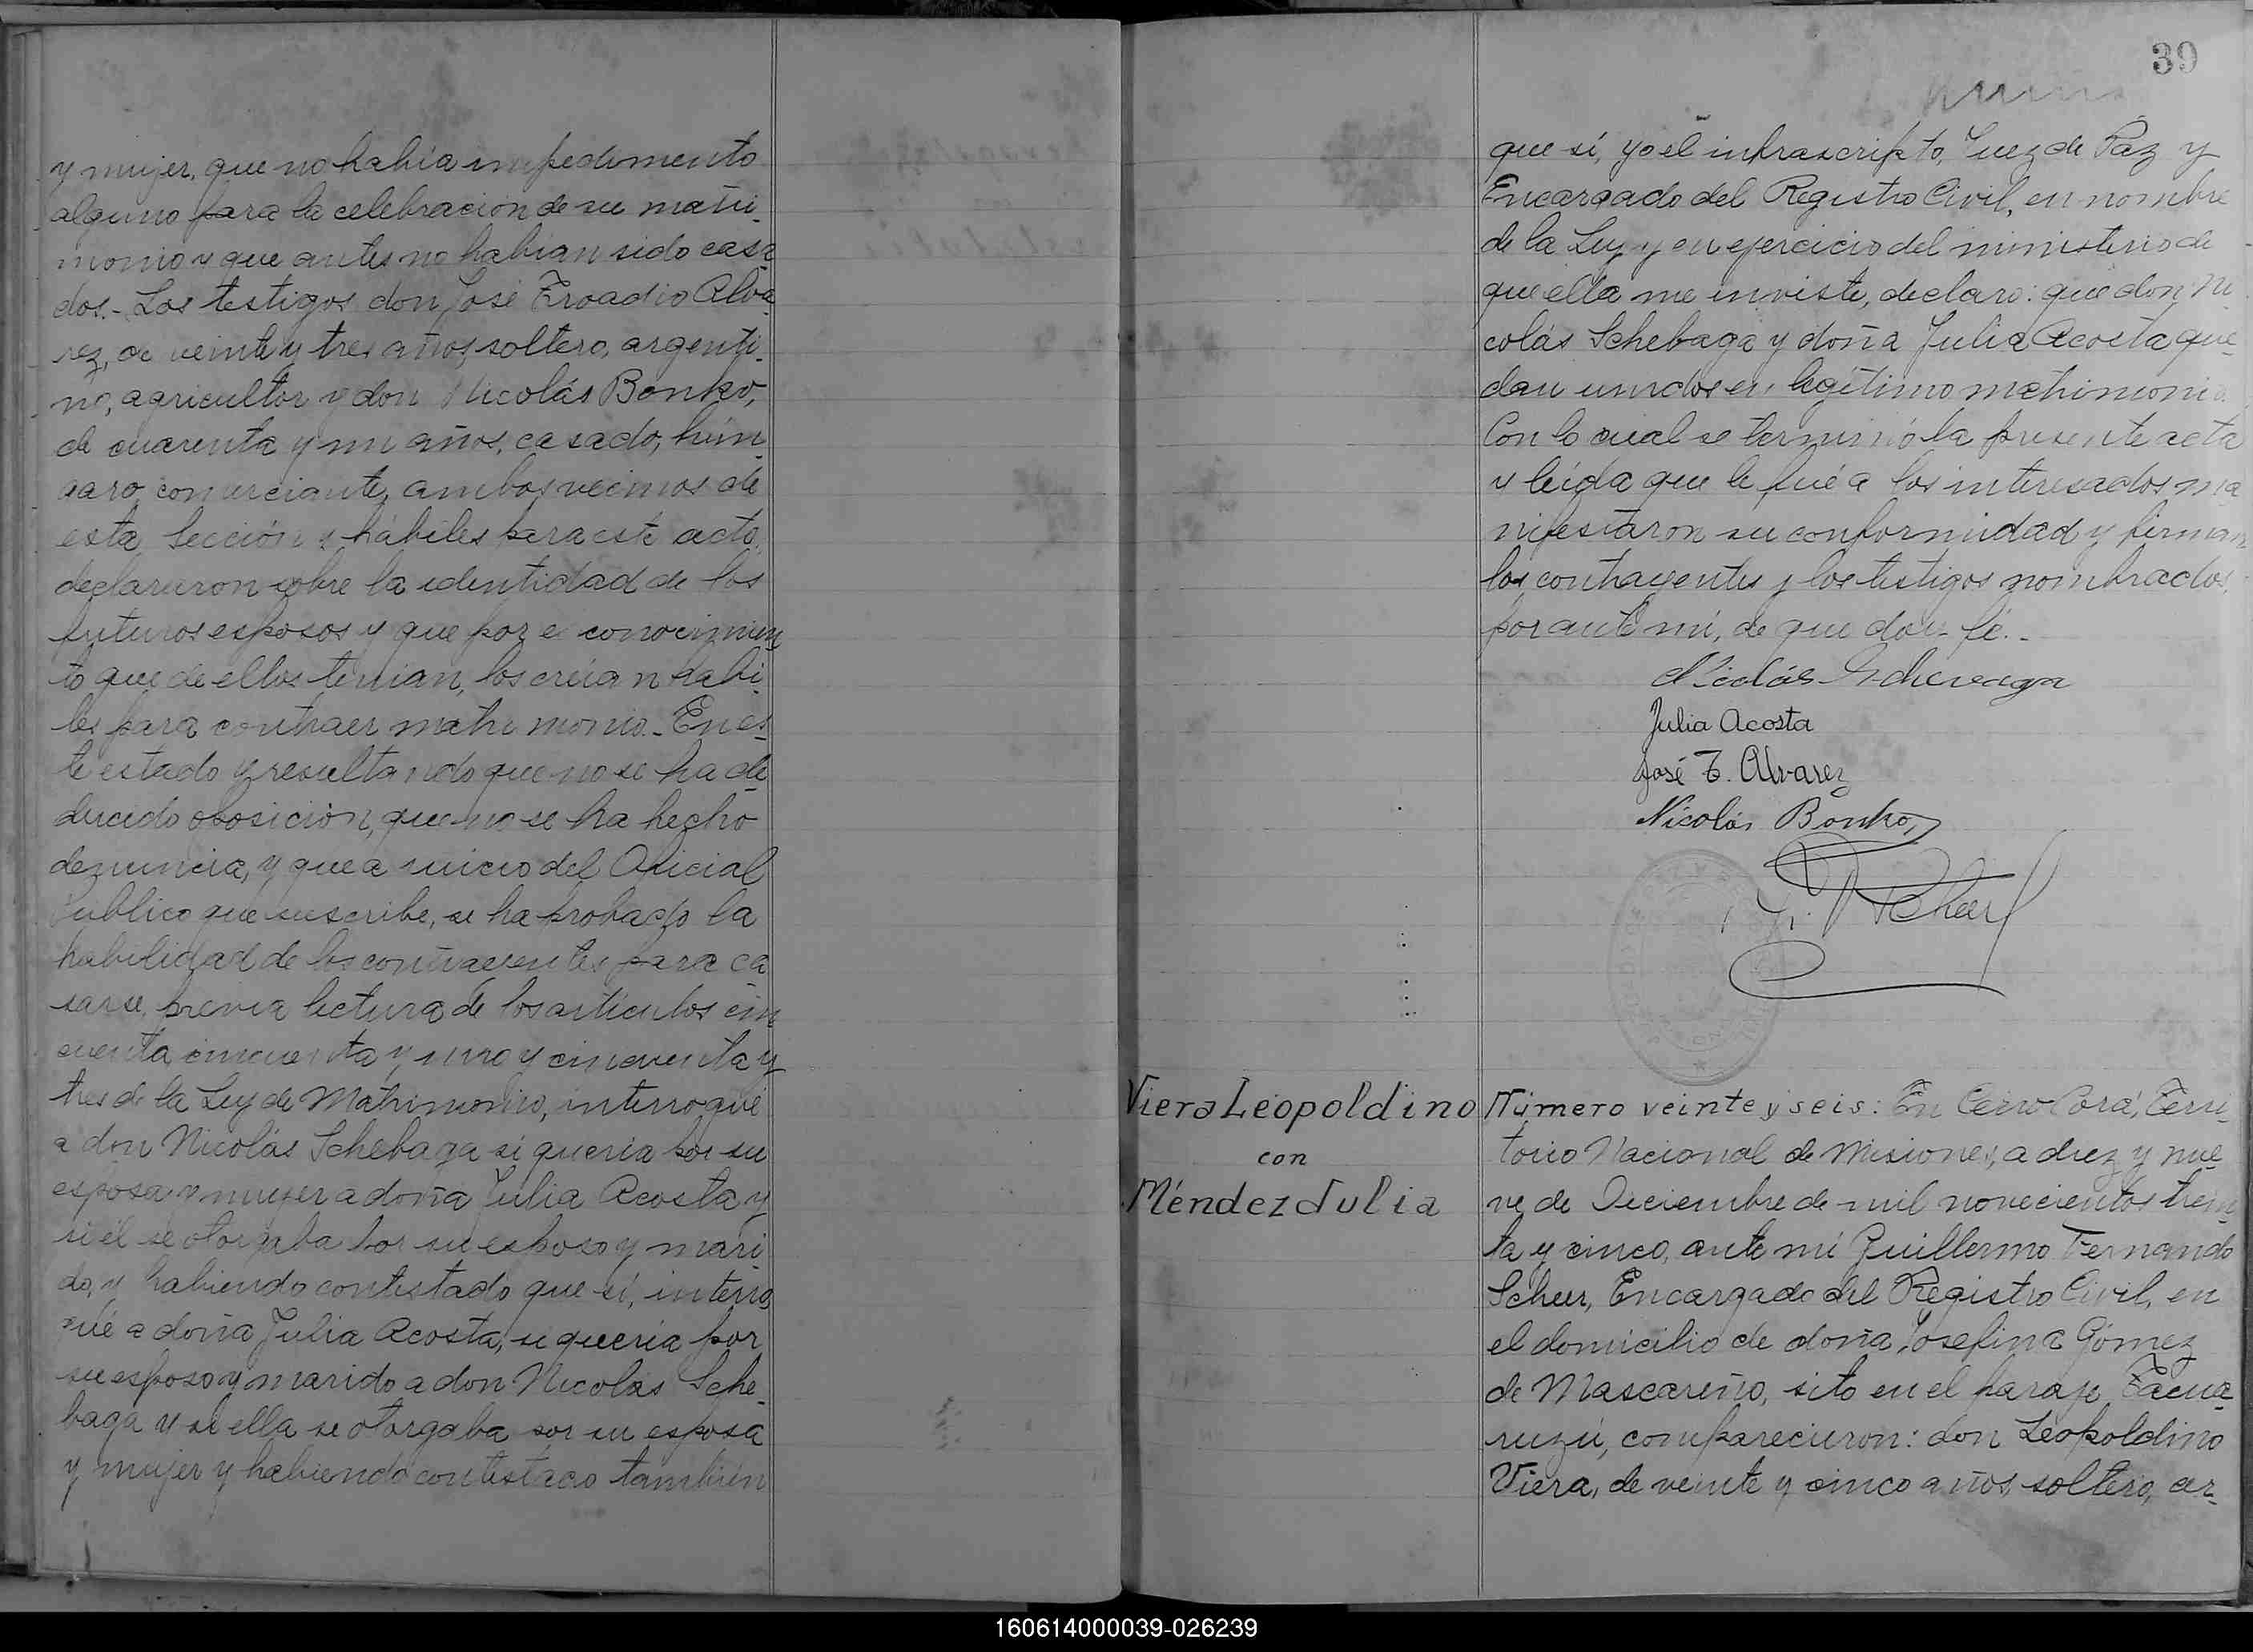 y mujer, que no había impedimento
alguno para la celebración de su matri-
monio y que antes no habían sido casa
dos.- Los testigos don José Troadio Alva-
rez, de veinte y tres años, soltero, argenti-
no, agricultor y don Nicolás Bonko,
de cuarenta y un años, casado, hún-
garo, comerciante, ambos vecinos de
esta Sección y hábiles para este acto,
declararon sobre la identidad de los
futuros esposos y que por el conocimien-
to que de ellos tenian, los creían hábi-
les para contraer matrimonio.- En es-
te estado y resultando que no se ha de-
ducido oposición, que no se ha hecho
denuncia, y que a juicio del Oficial
Público que suscribe, se ha probado la
habilidad de los contrayentes para ca
sarse, previa lectura de los artículos cin
cuenta, cincuenta y uno y cincuenta y
tres de la Ley de Matrimonio, interrogué
a don Nicolás Schebaga si quería por su
esposa y mujer a doña Julia Acosta y
si él se otorgaba por su esposo y mari-
do, y habiendo contestado que sí, interro
gué a doña Julia Acosta, si quería por
su esposo y marido a don Nicolás Sche-
baga y si ella se otorgaba por su esposa
y mujer y habiendo contestado también
39
que sí, yo el infrascripto, Juez de Paz y
Encargado del Registro Civil, en nombre
de la Ley y en ejercicio del ministerio de
que ella me inviste, declaro: que don Ni
colás Schebaga y doña Julia Acosta que-
dan unidos en legítimo matrimonio.
Con lo cual se terminó la presente acta
y leída que le fué a los interesados ma
nifestaron su conformidad y firman
los contrayentes y los testigos nombrados,
por ante mí, de que doy fé.-
Nicolás Schevaga
Julia Acosta
José T. Alvarez
Nicolás Bonko
Scheer
Viera Leopoldino
con
Méndez Julia
Número veinte y seis: En Cerro Corá, Terri-
torio Nacional de Misiones, a diez y nue-
ve de Diciembre de mil novecientos trein-
ta y cinco, ante mí Guillermo Fernando
Scheer, Encargado del Registro Civil, en
el domicilio de doña Josefina Gómez
de Mascareño, sito en el paraje Tacua-
ruzú, comparecieron: don Leopoldino
Viera, de veinte y cinco años, soltero, ar-
160614000039-026239